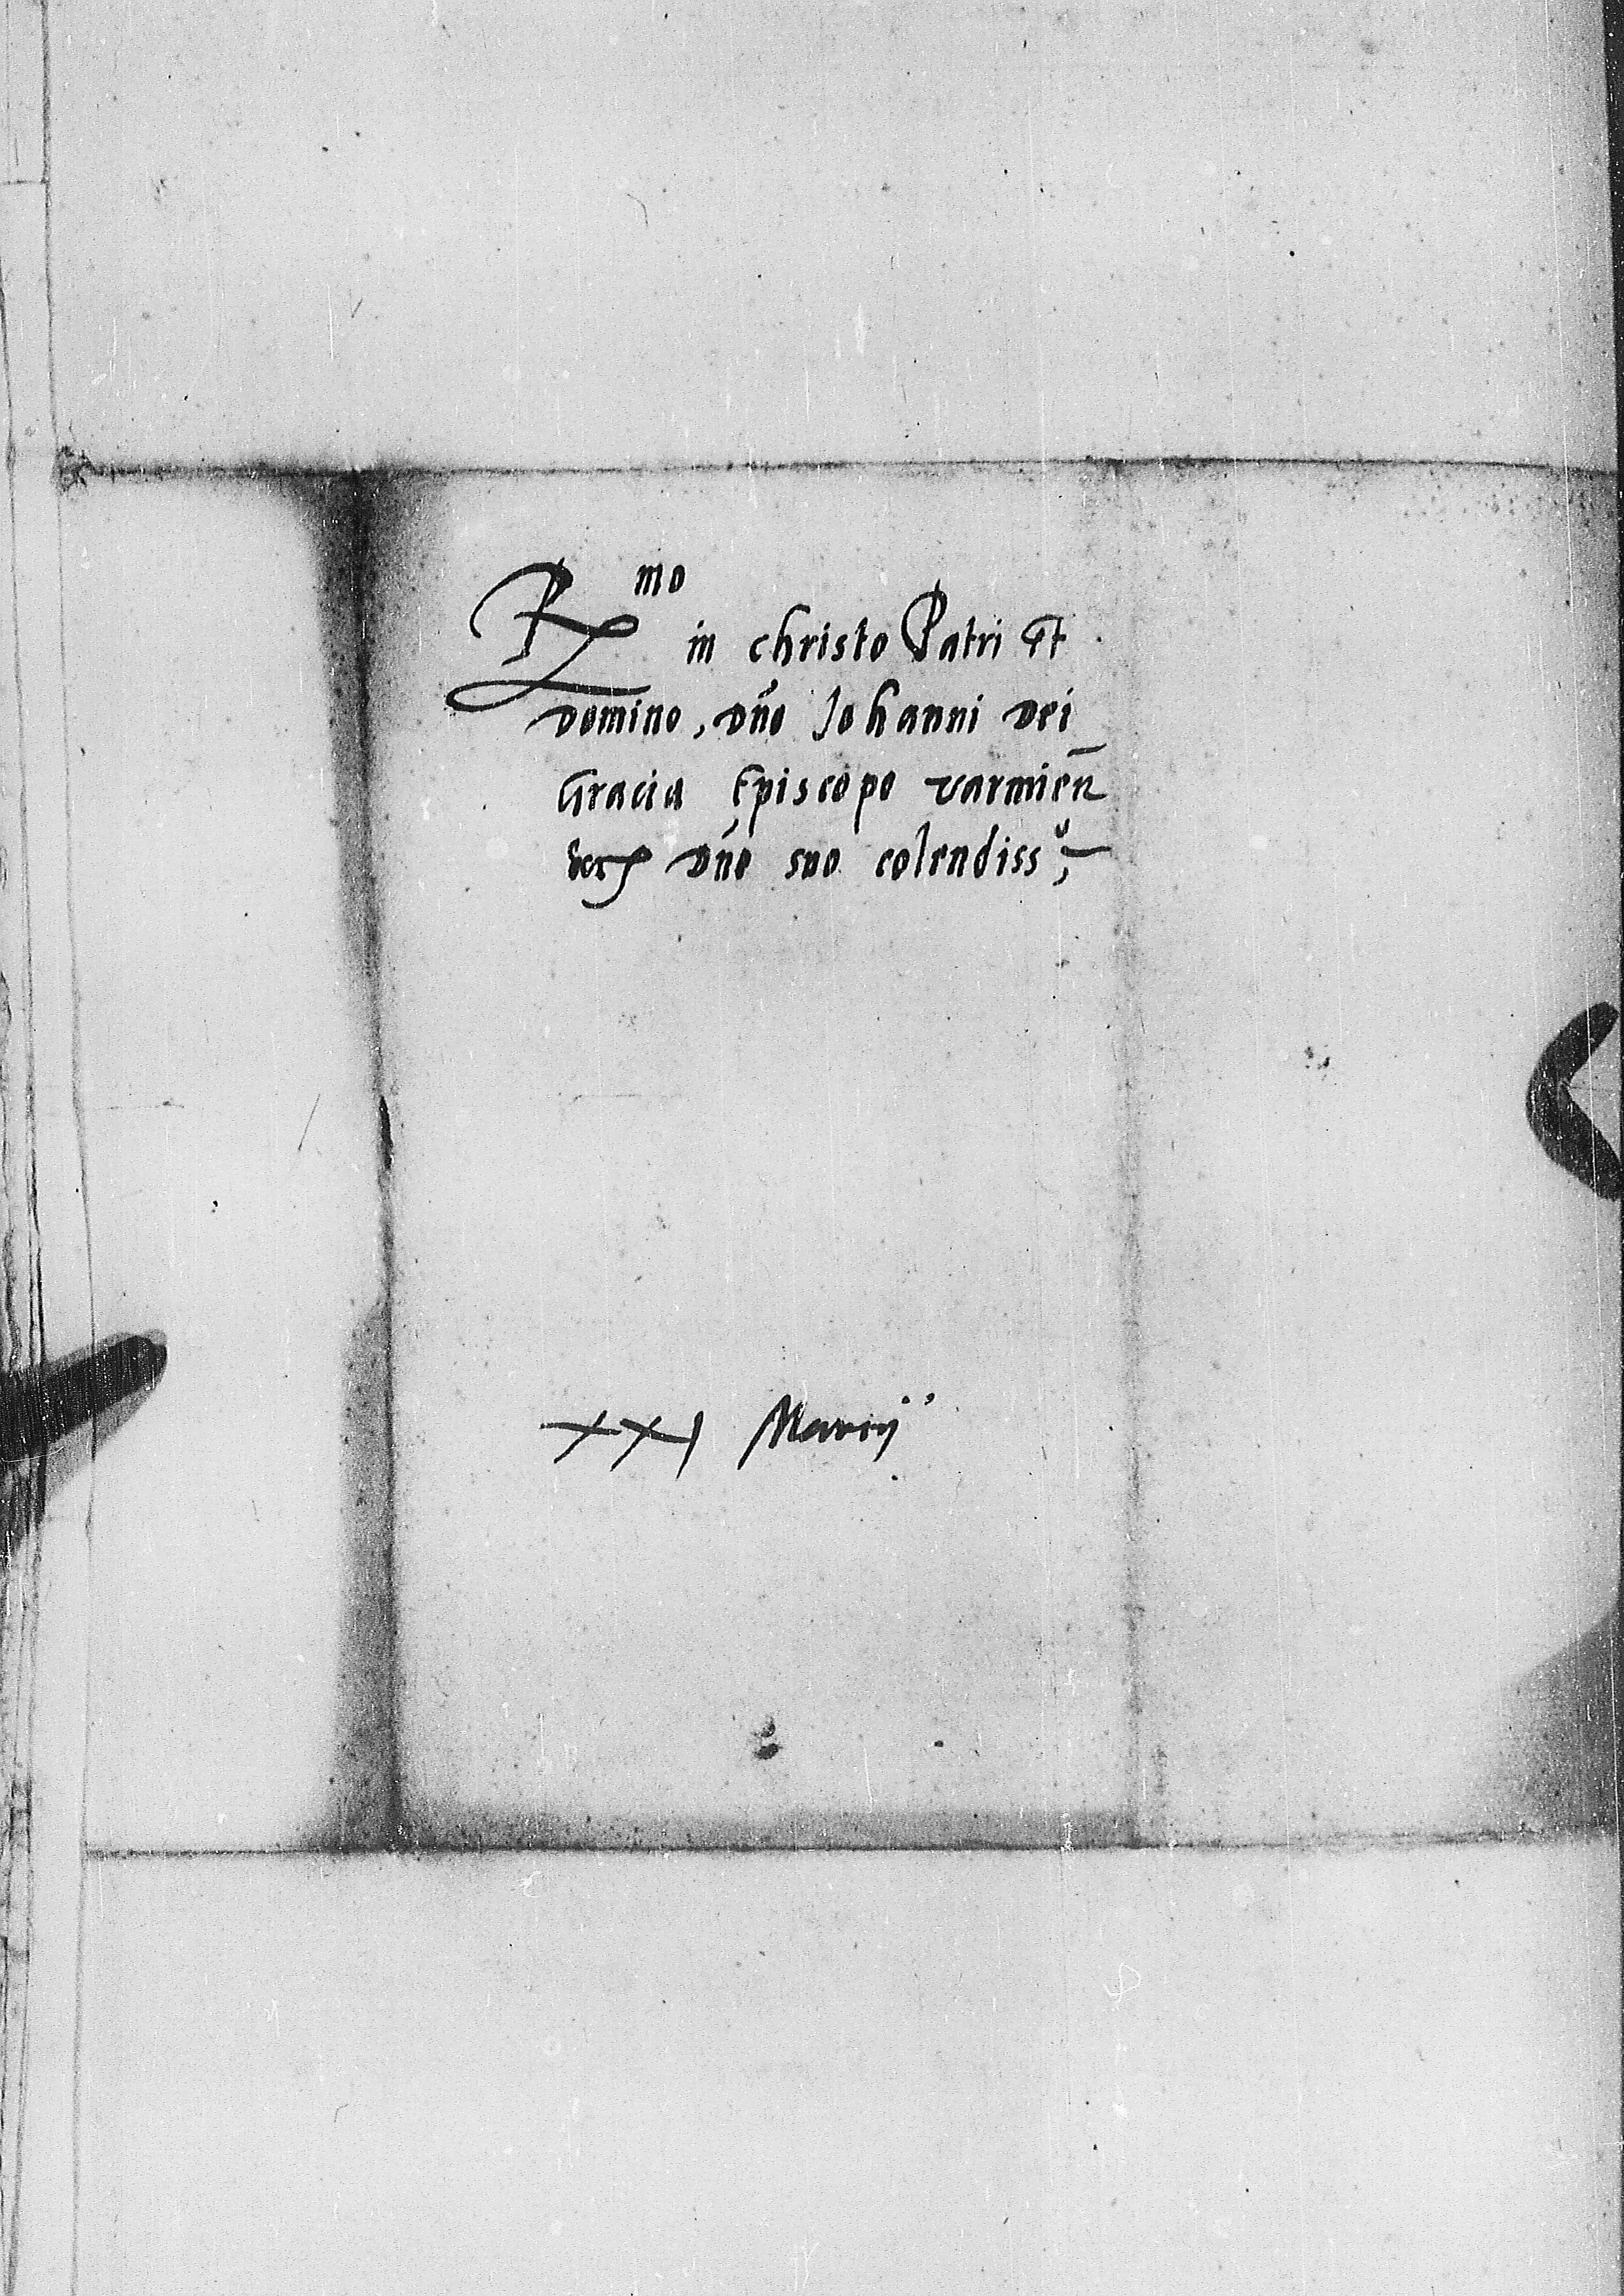 R<sup>mo</sup> in christo Patri et
Domino, dño Johanni Dei
Gracia Episcopo varmieñ
dño suo colendiss<sup>o</sup>
XXI Marcij